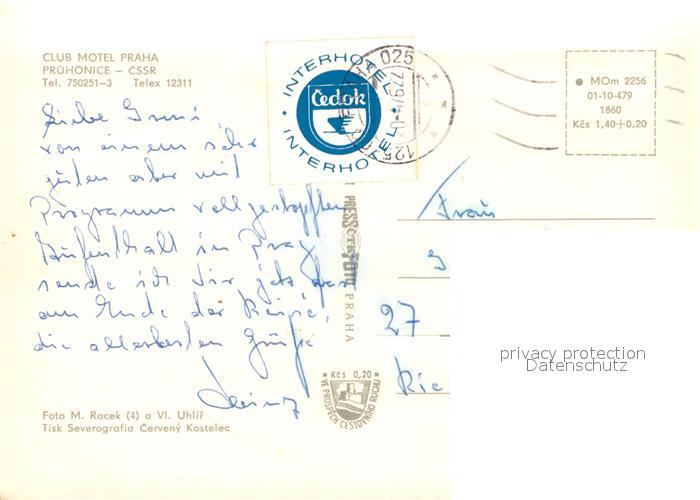 CLUB MOTEL PRAHA
PRŮHONICE – ČSSR
Tel. 750251–3 Telex 12311
INTERHOTEL
Čedok
INTERHOTEL
025
MOm 2256
01-10-479
1860
Kčs 1,40+0,20
Liebe
von einem sehr
guten aber mit
Programm vollgestopften
Aufenthalt in Prag
sende ich Dir jetzt
am Ende der Reise,
die allerbesten Grüße
Heinz
PRESSFOTO PRAHA
Frau
27
Kčs 0,20
VE PROSPĚCH CESTOVNÍHO RUCHU
privacy protection
Datenschutz
Foto M. Racek (4) a Vl. Uhlíř
Tisk Severografia Červený Kostelec